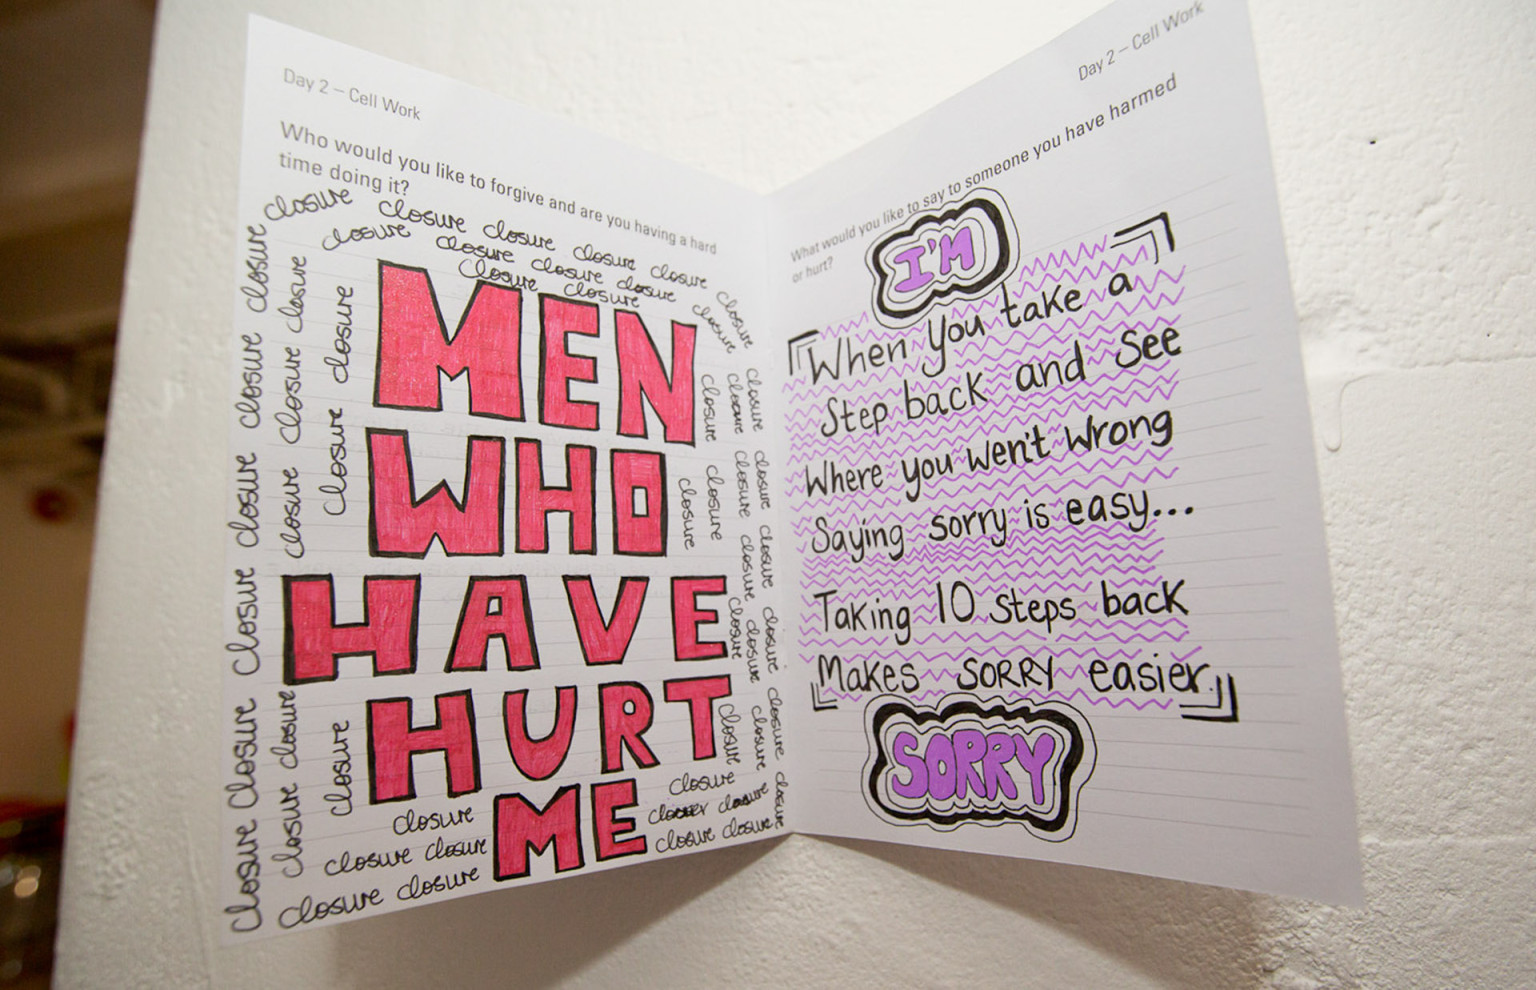 Day 2 – Cell Work
Who would you like to forgive and are you having a hard
time doing it?
closure closure closure closure closure
closure closure closure closure
closure closure
closure closure closure closure closure closure
closure closure closure closure closure
closure closure closure
MEN
WHO
HAVE
HURT
ME
closure closure
closure closure closure
closure closure closure closure closure closure closure
closure closure closure closure closure closure
closure
closure closure
closure closure
closure
closure
closure closure
Day 2 – Cell Work
What would you like to say to someone you have harmed
or hurt?
I'M
When you take a
Step back and See
Where you wen't wrong
Saying sorry is easy...
Taking 10 steps back
Makes SORRY easier.
SORRY